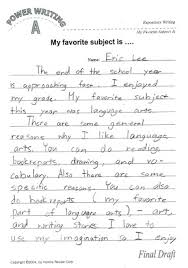 POWER WRITING
A
Expository Writing
My Favorite Subject is
My favorite subject is ....
Name: Eric Lee
The end of the school year
is approaching fast. I enjoyed
my grade. My favorite subject
this year was language arts.
There are some general
reasons why I like language
arts. You can do reading
bookreports, drawing, and vo-
cabulary. Also there are some
specific reasons. You can also
do book reports (my favorite
part of language arts) - art,
and writing stories I love to
use my imagination so I enjoy
Final Draft